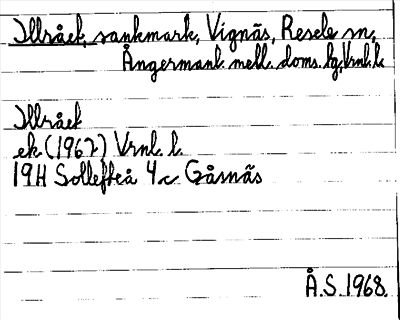 Illråck, sankmark, Vignäs, Resele sn,
Ångermanl. mell. doms. lg, Vrnl. l.
Illråck
ek (1967) Vrnl. l.
19H Sollefteå 4c Gåsnäs
Å.S. 1968.